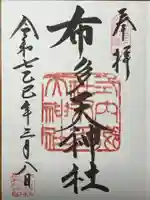 奉拝
布多天神社
令和七乙巳年三月八日